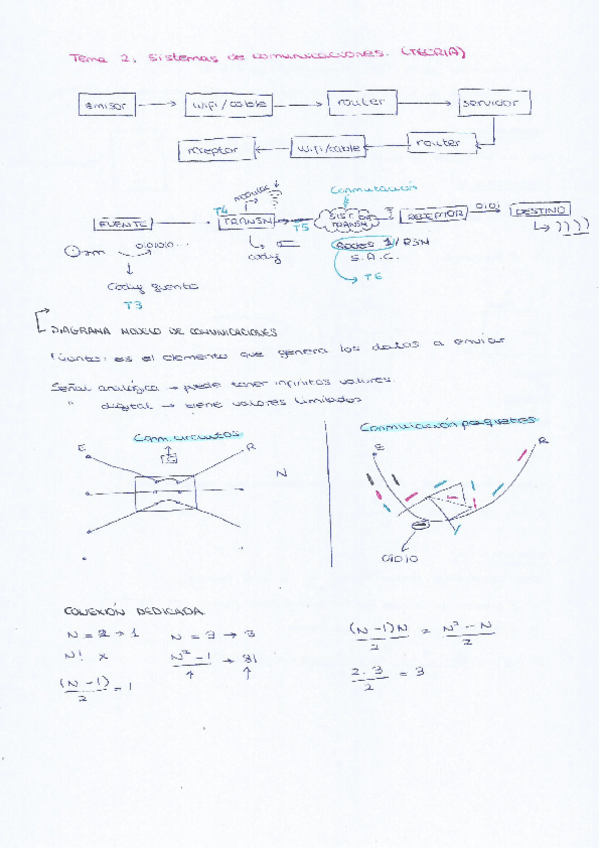 Tema 2: Sistemas de comunicaciones. (TEORIA)
Emisor
wifi/cable
router
servidor
router
wifi/cable
rreptor
Conmutación
MODULAR
T4
FUENTE
TRANSM
T5
SIST. DE TRANSM
RECEPTOR
0101
DESTINO
010101...
codif
REDES
S.A.C.
T6
Codif fuente
T3
DIAGRAMA MODELO DE COMUNICACIONES
Fuente: es el elemento que genera los datos a enviar
Señal analógica → puede tener infinitos valores.
" digital → tiene valores limitados
Conm. circuitos
Conmutación paquetes
E
R
N
E
R
NODO
CONEXIÓN DEDICADA
N = 2 → 1
N = 3 → 3
(N-1)N / 2 = N² - N / 2
N! x
N² - 1 →
2·3 / 2 = 3
(N-1) / 2 = 1